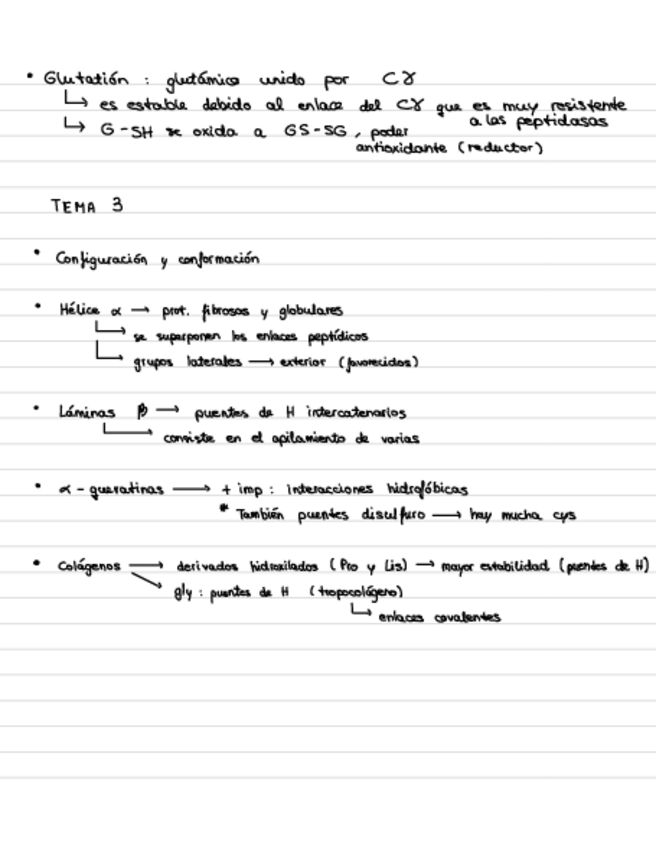 • Glutatión : glutámico unido por Cγ
↳ es estable debido al enlace del Cγ que es muy resistente
a las peptidasas
↳ G-SH se oxida a GS-SG, poder
antioxidante (reductor)
TEMA 3
• Configuración y conformación
• Hélice α → prot. fibrosos y globulares
↳ se superponen los enlaces peptídicos
↳ grupos laterales → exterior (favorecidos)
• Láminas β → puentes de H intercatenarios
↳ consiste en el apilamiento de varias
• α-queratinas → + imp : Interacciones hidrofóbicas
* También puentes disulfuro → hay mucha cys
• Colágenos → derivados hidroxilados (Pro y Lis) → mayor estabilidad (puentes de H)
↘ gly : puentes de H (tropocolágeno)
↳ enlaces covalentes